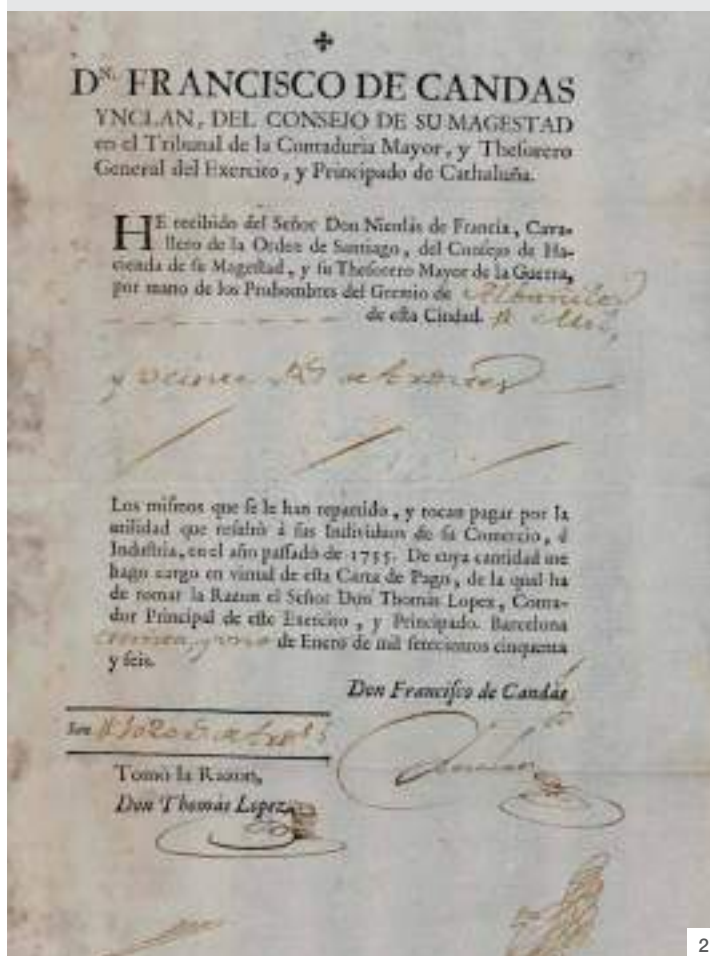 DN. FRANCISCO DE CANDAS
YNCLAN, DEL CONSEJO DE SU MAGESTAD
en el Tribunal de la Contaduria Mayor, y Thesorero
General del Exercito, y Principado de Cathaluña.
HE recibido del Señor Don Nicolás de Francia, Cava-
llero de la Orden de Santiago, del Consejo de Ha-
cienda de su Magestad, y su Thesorero Mayor de la Guerra,
por mano de los Prohombres del Gremio de Albañiles
de esta Ciudad.
y veinte
Los mismos que se le han repartido, y tocan pagar por la
utilidad que resultò à sus Individuos de su Comercio, ò
Industria, en el año passado de 1755. De cuya cantidad me
hago cargo en virtud de esta Carta de Pago, de la qual ha
de tomar la Razon el Señor Don Thomás Lopez, Conta-
dor Principal de este Exercito, y Principado. Barcelona
treinta, y uno de Enero de mil setecientos cinquenta
y seis.
Don Francisco de Candás
Son
Tomò la Razon,
Don Thomás Lopez
2